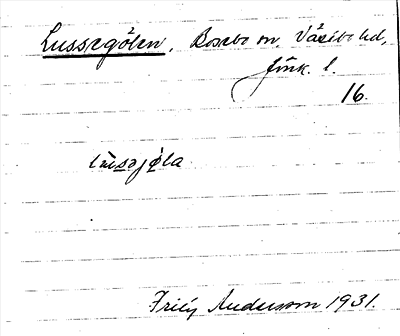 Lussegölen, Bosebo sn, Västbo hd,
Jönk. l.
16.
lùsəjø̀la
Frity Andersson 1931.